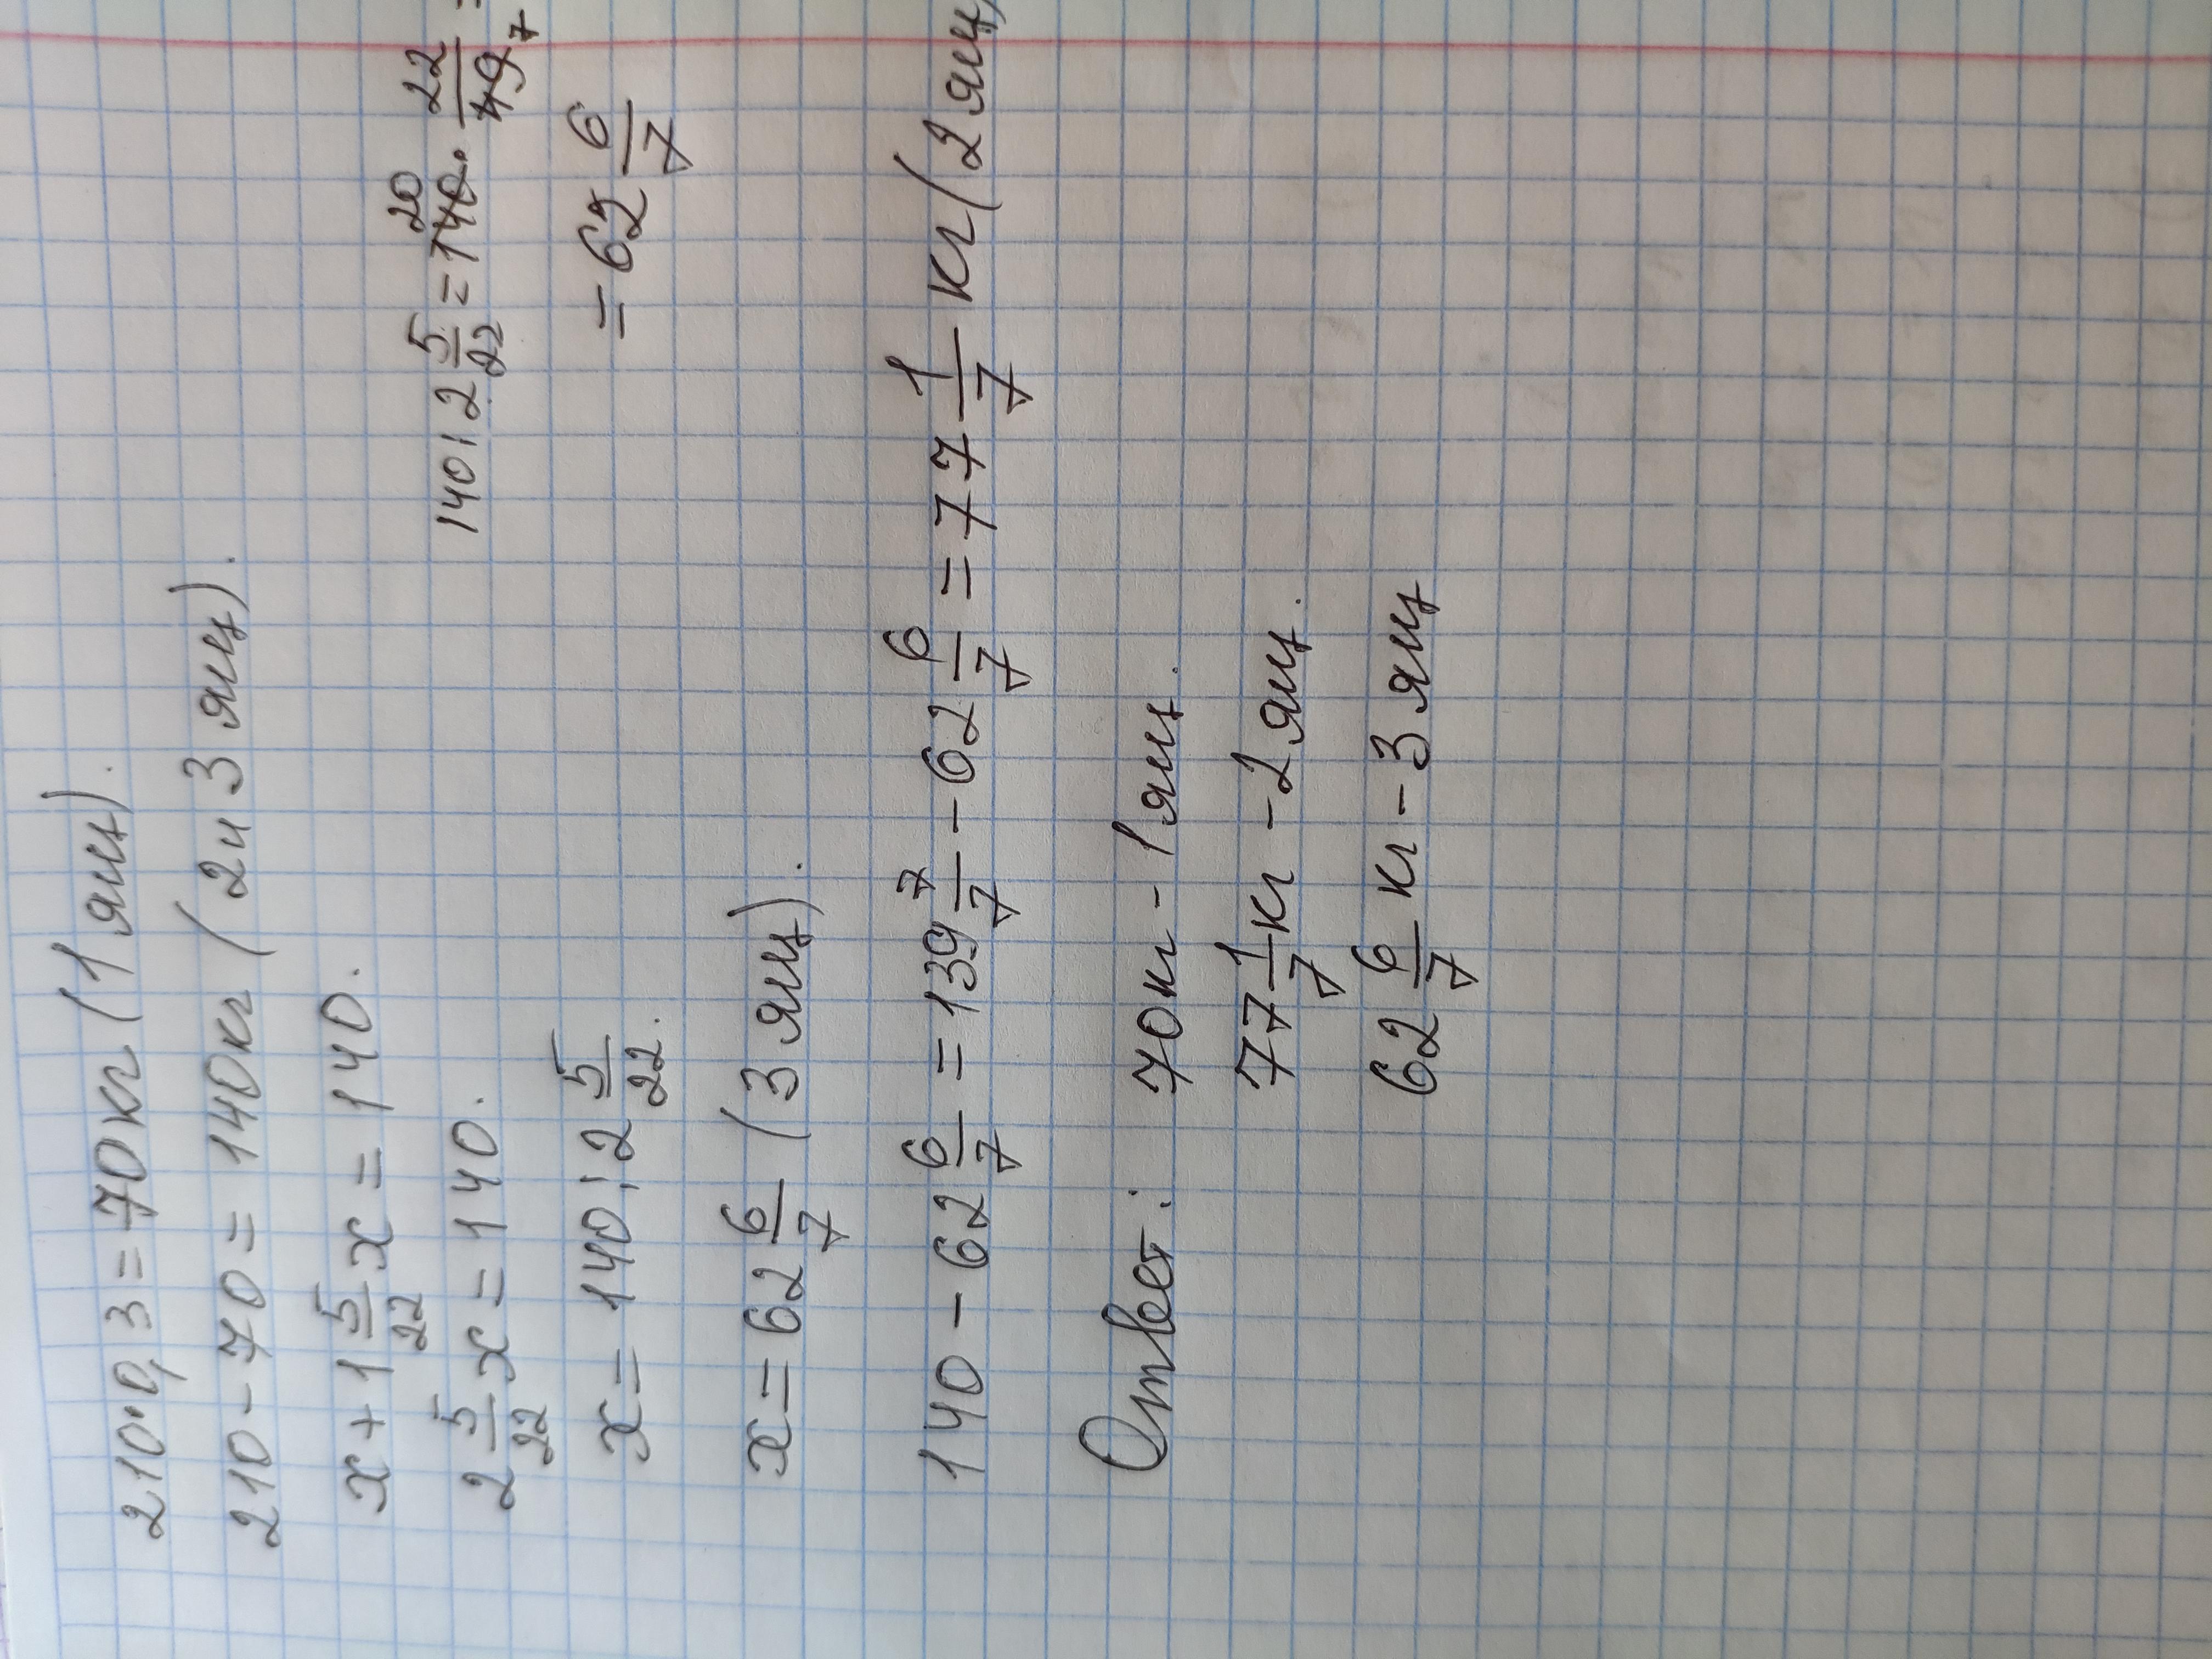 210·0,3=70кг (1 ящ).
210-70=140кг (2 и 3 ящ).
x+1 5/22 x=140.
2 5/22 x=140.
140:2 5/22=140·22/49=
20
7
x=140:2 5/22.
=62 6/7
x=62 6/7 (3 ящ).
140-62 6/7=139 7/7-62 6/7=77 1/7 кг (2 ящ)
Ответ: 70кг-1 ящ.
77 1/7 кг-2 ящ.
62 6/7 кг-3 ящ